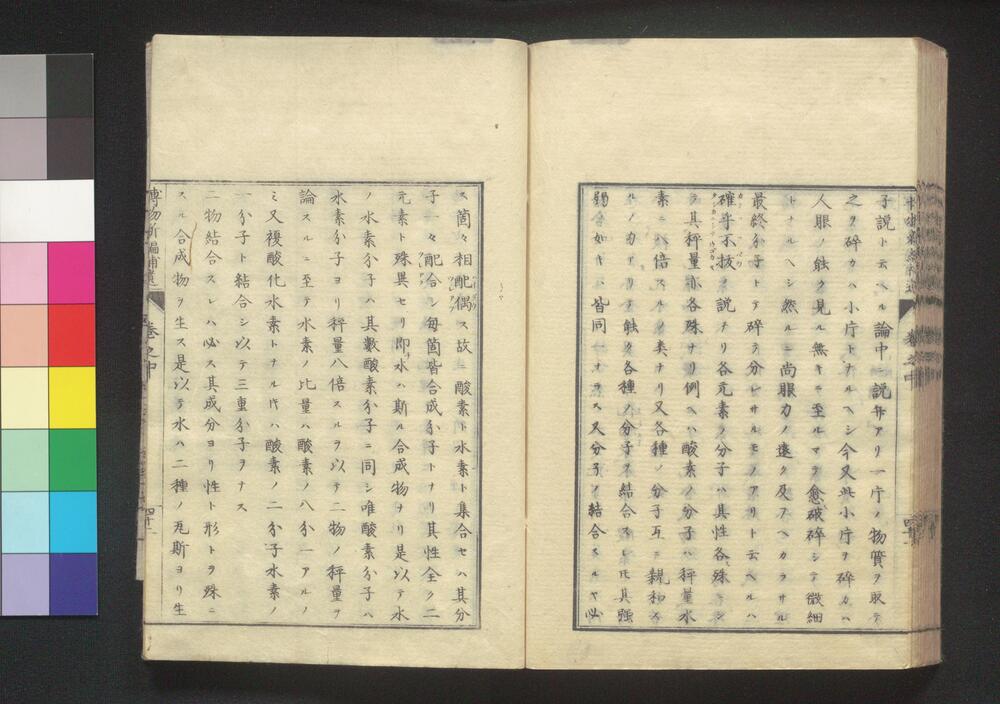 子説ト云ヘル論中ニ説ケアリ一片ノ物質ヲ取テ
之ヲ碎カハ小片トナルヘシ今又此小片ヲ碎カハ
人眼ノ能ク見ル無キニ至ルマテ愈破碎シテ微細
トナルヘシ然ルニ尚眼力ノ遠ク及フヘカラサル
最終分子トテ碎テ分レサルモノアリト云ヘルハ
確乎不抜ノ説ナリ各元素ノ分子ハ其性各殊ニシ
テ其秤量亦各殊ナリ例ヘハ酸素ノ分子ハ秤量水
素ニ八倍スルノ類ナリ又各種ノ分子互ニ親和ス
ルノ力アリテ触ルル各種ノ分子ヲ結合スレ𪜈其強
弱ノ如キハ皆同一ナラス又分子ノ結合スルヤ必
ス箇々相配偶ス故ニ酸素ト水素ト集合セハ其分
子一々配合シ毎箇皆合成分子トナリ其性全ク二
元素ト殊異セリ即水ハ斯ル合成物ナリ是以テ水
ノ水素分子ハ其數酸素分子ニ同シ唯酸素分子ハ
水素分子ヨリ秤量八倍スルヲ以テ二物ノ秤量ヲ
論スルニ至テ水素ノ比量ハ酸素ノ八分一アルノ
ミ又複酸化水素トナル𪜈ハ酸素ノ二分子水素ノ
一分子ト結合シ以テ三重分子ヲナス
二物結合スレハ必ス其成分ヨリ性ト形トヲ殊ニ
スル合成物ヲ生ス是以テ水ハ二種ノ瓦斯ヨリ生
博物新編補遺
巻之中